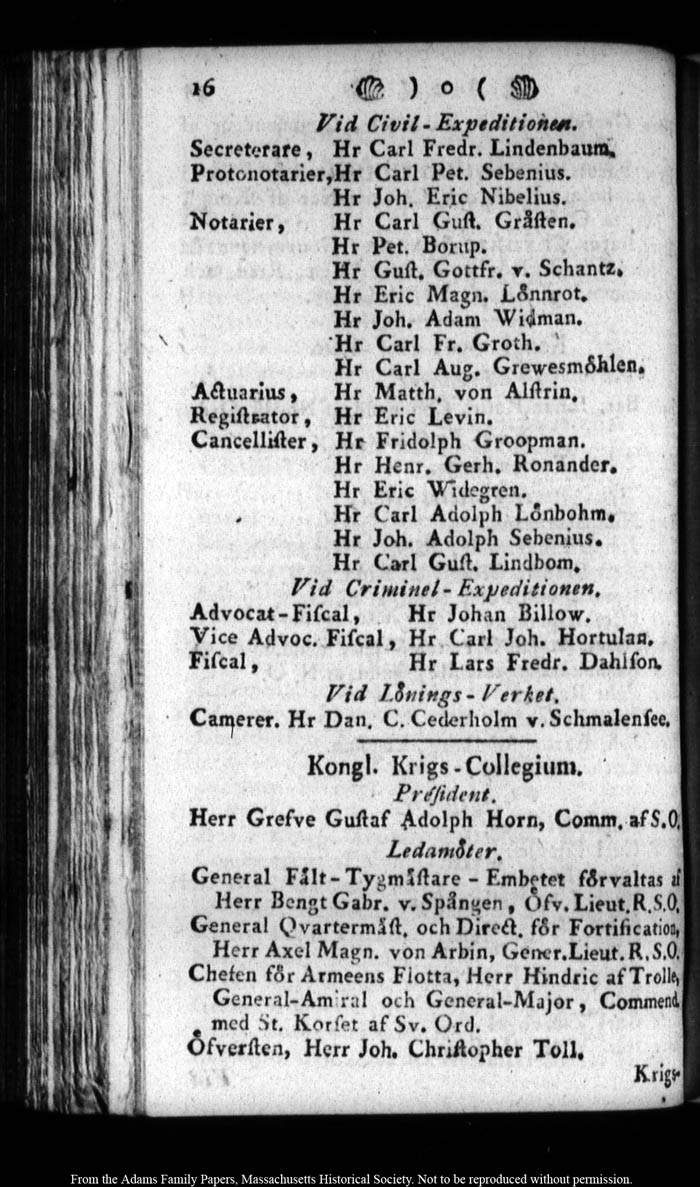 16 ) o (
Vid Civil-Expeditionen.
Secreterare, Hr Carl Fredr. Lindenbaum.
Protonotarier, Hr Carl Pet. Sebenius.
Hr Joh. Eric Nibelius.
Notarier, Hr Carl Guſt. Gråſten.
Hr Pet. Borup.
Hr Guſt. Gottfr. v. Schantz.
Hr Eric Magn. Lönnrot.
Hr Joh. Adam Widman.
Hr Carl Fr. Groth.
Hr Carl Aug. Grewesmöhlen.
Actuarius, Hr Matth. von Alſtrin.
Regiſtrator, Hr Eric Levin.
Cancelliſter, Hr Fridolph Groopman.
Hr Henr. Gerh. Ronander.
Hr Eric Widegren.
Hr Carl Adolph Lönbohm.
Hr Joh. Adolph Sebenius.
Hr Carl Guſt. Lindbom.
Vid Criminel-Expeditionen.
Advocat-Fiſcal, Hr Johan Billow.
Vice Advoc. Fiſcal, Hr Carl Joh. Hortulan.
Fiſcal, Hr Lars Fredr. Dahlſon.
Vid Lönings-Verket.
Camerer. Hr Dan. C. Cederholm v. Schmalenſee.
Kongl. Krigs-Collegium.
Préſident.
Herr Grefve Guſtaf Adolph Horn, Comm. af S.O.
Ledamöter.
General Fält-Tygmäſtare-Embetet förvaltas af
Herr Bengt Gabr. v. Spången, Öfv. Lieut. R.S.O.
General Qvartermäſt. och Direct. för Fortification,
Herr Axel Magn. von Arbin, Gener. Lieut. R.S.O.
Chefen för Armeens Flotta, Herr Hindric af Trolle,
General-Amiral och General-Major, Commend.
med St. Korſet af Sv. Ord.
Öfverſten, Herr Joh. Chriſtopher Toll.
Krigs-
From the Adams Family Papers, Massachusetts Historical Society. Not to be reproduced without permission.